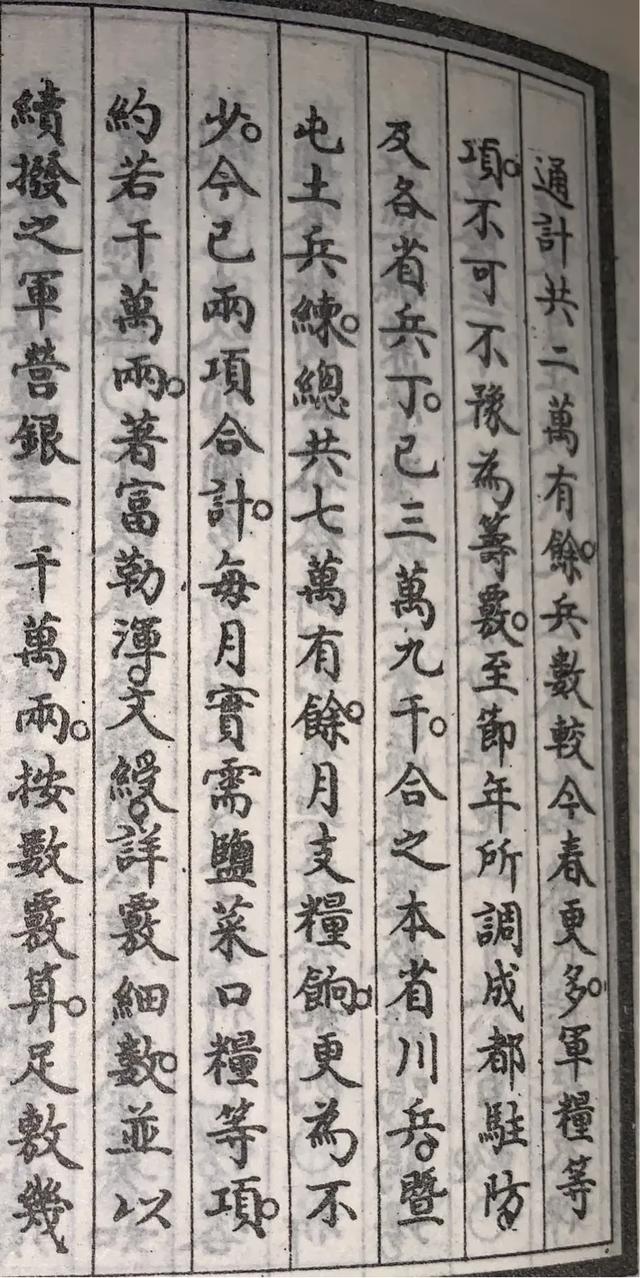 通計共二萬有餘。兵數較今春更多。軍糧等
項。不可不豫為籌覈。至節年所調成都駐防
及各省兵丁。已三萬九千。合之本省川兵。暨
屯土兵練。總共七萬有餘。月支糧餉。更為不
少。今已兩項合計。每月實需鹽菜口糧等項。
約若干萬兩。著富勒渾。文綬。詳覈細數。並以
續撥之軍營銀一千萬兩。按數覈算。足敷幾